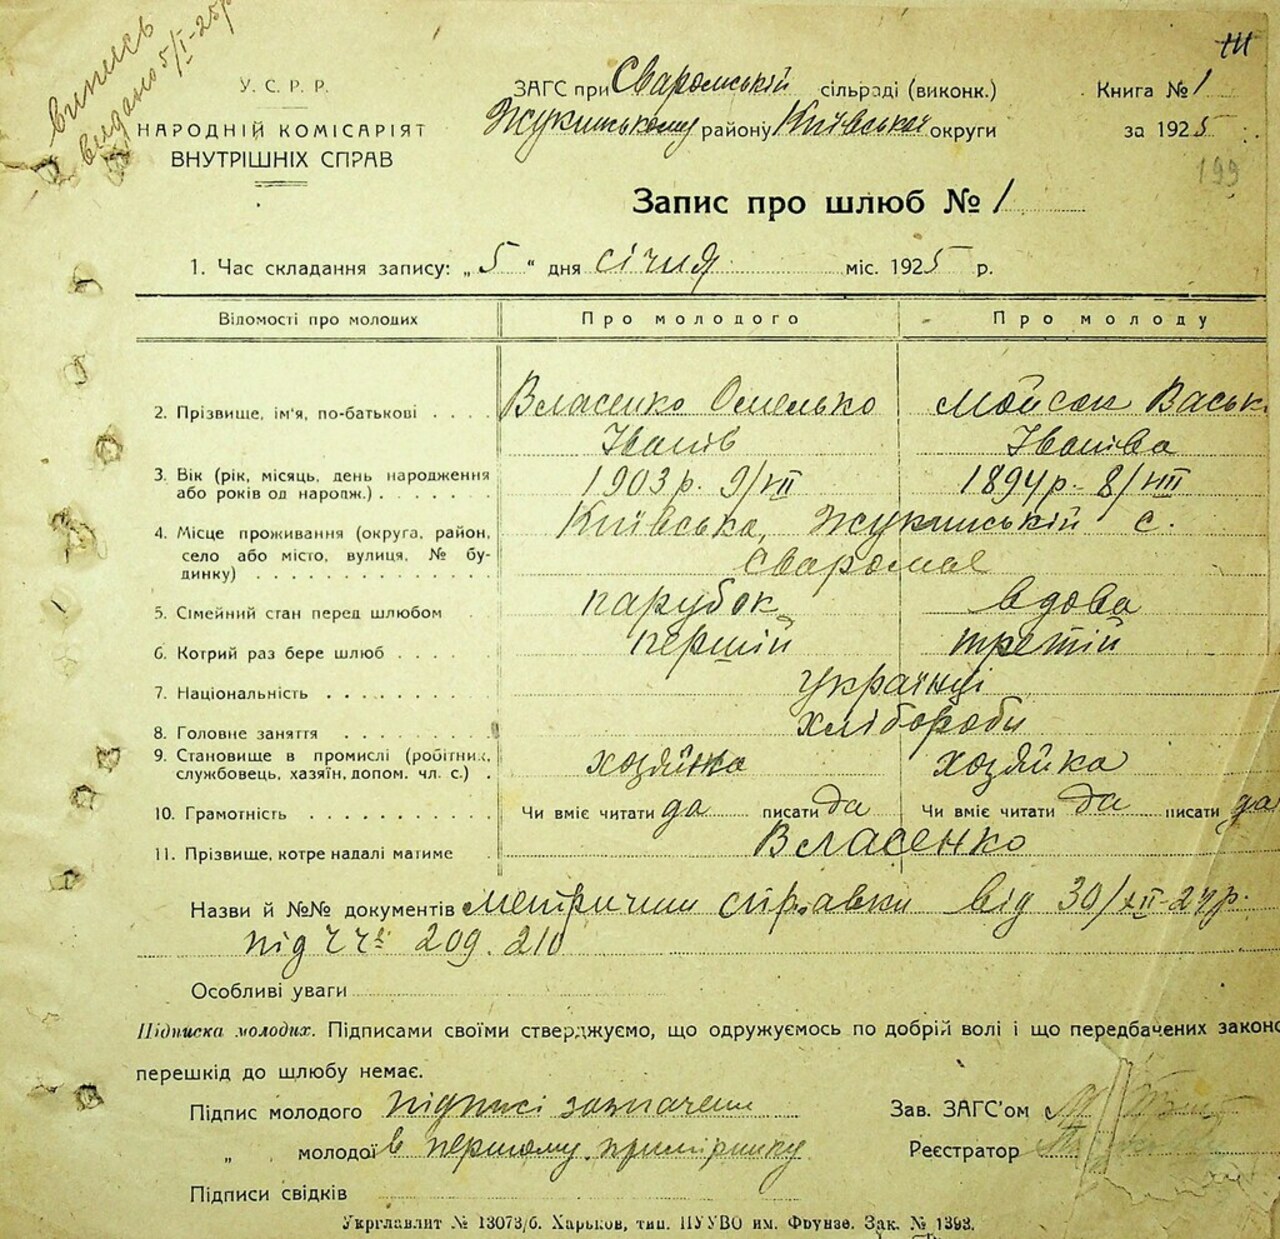 випись
видано 5/I-25р
У. С. Р. Р.
НАРОДНІЙ КОМІСАРІЯТ
ВНУТРІШНІХ СПРАВ
ЗАГС при Сваромській сільраді (виконк.)
Жукинському району Київської округи
Книга № 1
за 1925
199
Запис про шлюб № 1
1. Час складання запису: „ 5 “ дня січня міс. 1925 р.
Відомості про молодих Про молодого Про молоду
2. Прізвище, ім'я, по-батькові . . . . Власенко Омелько Мойсак Васьк
Іванів Іванівa
3. Вік (рік, місяць, день народження 1903 р. 9/VII 1894 р. 8/VIII
або років од народж.) . . . . . .
4. Місце проживання (округа, район, Київська, Жукинській с.
село або місто, вулиця, № бу- Сваромля
динку) . . . . . . . . . . . . .
5. Сімейний стан перед шлюбом парубок вдова
6. Котрий раз бере шлюб . . . . . першій третій
7. Національність . . . . . . . . . українці
8. Головне заняття . . . . . . . . хлібороби
9. Становище в промислі (робітник, хозяйка хозяйка
службовець, хазяїн, допом. чл. с.) .
10. Грамотність . . . . . . . . . . . Чи вміє читати да писати да Чи вміє читати да писати да
11. Прізвище, котре надалі матиме Власенко
Назви й №№ документів метричні справки від 30/XII-24р.
під 209. 210
Особливі уваги
Підписка молодих. Підписами своїми стверджуємо, що одружуємось по добрій волі і що передбачених законо
перешкід до шлюбу немає.
Підпис молодого підписі зазначені
„ молодої в першому примірнику
Підписи свідків
Зав. ЗАГС'ом
Реєстратор
Укрглавлит № 13073/б. Харьков, тип. ПУУВО им. Фрунзе. Зак. № 1393.